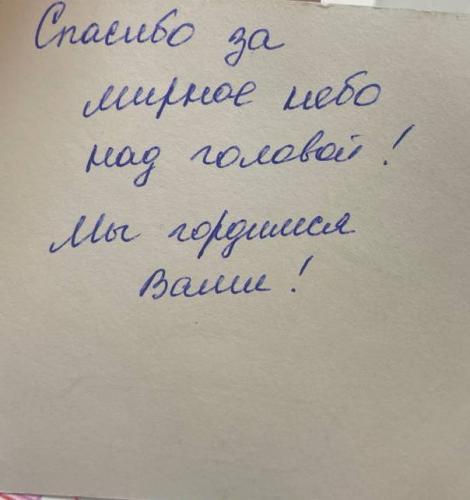 Спасибо за
мирное небо
над головой!
Мы гордимся
Вами!